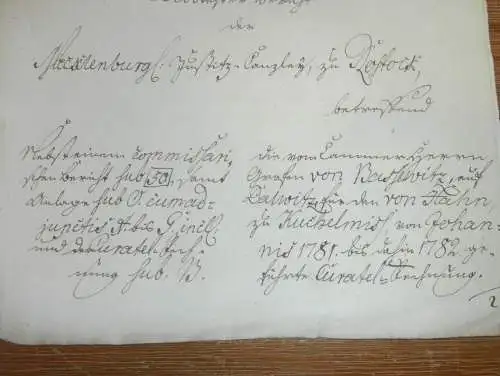 der
Mecklenburgl: Justitz-Canzley, zu Rostock,
betreffend
Nebst einem Commissari-
schen Bericht sub 50, samt
Anlage sub O. cum ad-
junctis A. bis P. incl.
und der Curatel-Rech-
nung sub. B.
die vom Cammerherrn
Grafen von Bassewitz, auf
Dalwitz für den von Hahn
zu Kuchelmiß, von Johan-
nis 1781. bis dahin 1782. ge-
führte Curatel-Rechnung.